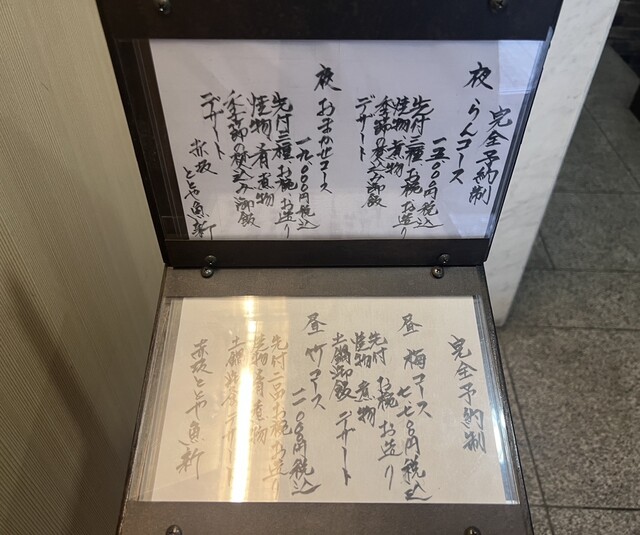 完全予約制
夜 らんコース
一五、〇〇〇円税込
先付三種 お椀 お造り
焼物 煮物
季節の炊込み御飯
デザート
夜 おまかせコース
一九、〇〇〇円税込
先付三種 お椀 お造り
焼物 肴 煮物
季節の炊込み御飯
デザート
赤坂 ととや魚新
完全予約制
昼 梅コース
七七〇〇円税込
先付 お椀 お造り
焼物 煮物
土鍋御飯 デザート
昼 竹コース
一一、〇〇〇円税込
先付二品 お椀 お造り
焼物 肴 煮物
土鍋 デザート
赤坂ととや魚新